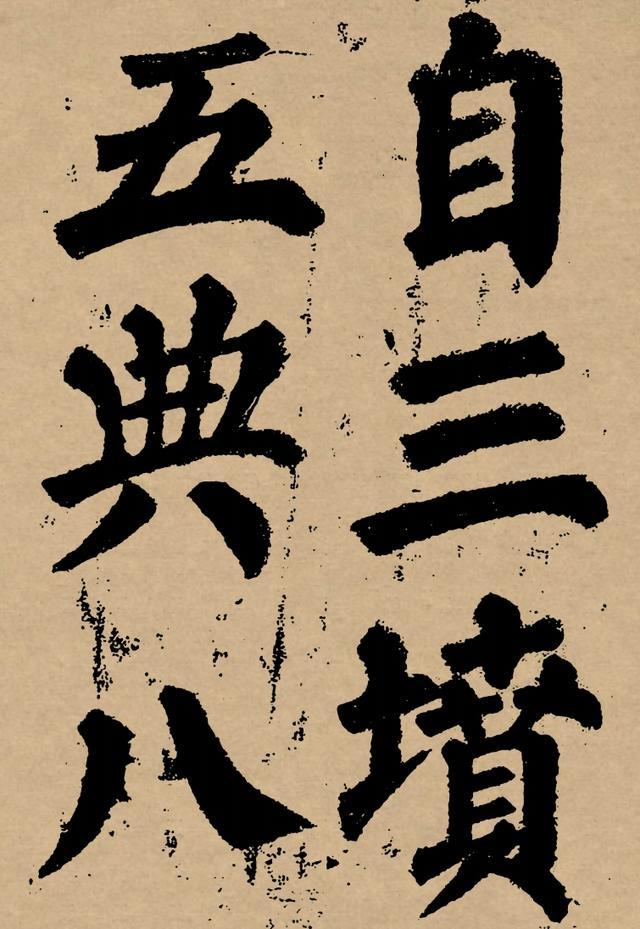 自三墳
五典八